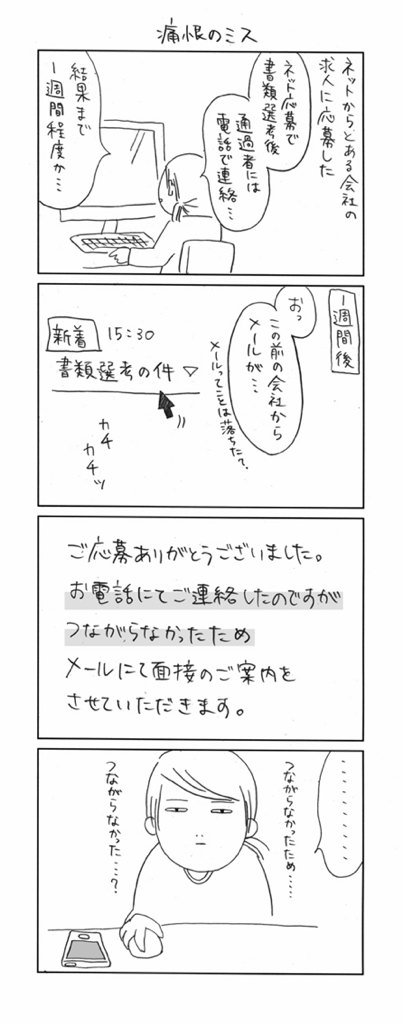 痛恨のミス
ネットからとある会社の
求人に応募した
ネット応募で
書類選考後
通過者には
電話で連絡…
結果まで
1週間程度か…
1週間後
おっ
この前の会社から
メールが…
メールってことは落ちた?
新着 15:30
書類選考の件 ▽
カチ
カチッ
ご応募ありがとうございました。
お電話にてご連絡したのですが
つながらなかったため
メールにて面接のご案内を
させていただきます。
………
つながらなかったため……
つながらなかった…?